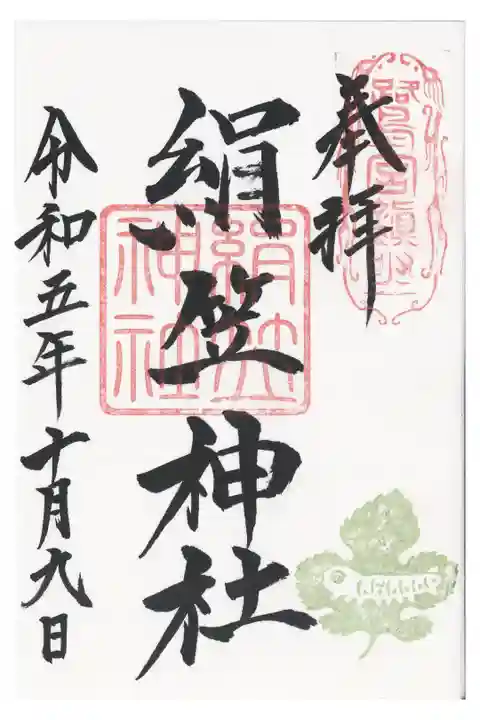 奉拝
絹笠神社
絹笠
神社
令和五年十月九日